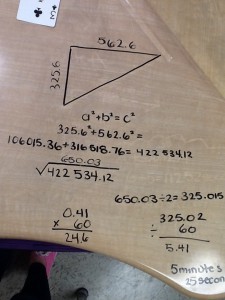 562.6
325.6
a²+b²=c²
325.6²+562.6²=
106015.36+316518.76=422 534.12
650.03
√422 534.12
650.03÷2=325.015
0.41
x 60
24.6
325.02
÷ 60
5.41
5 minutes
25 secon